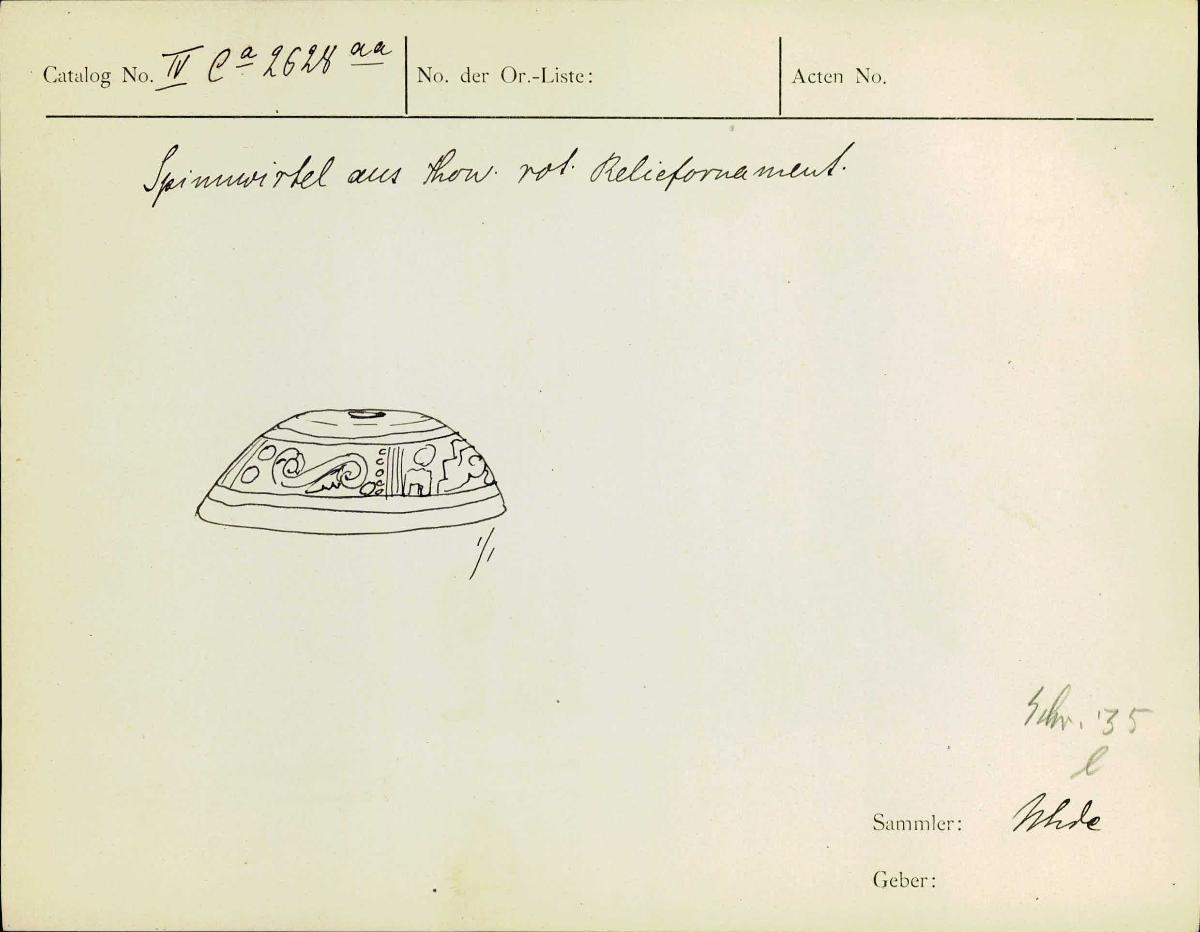 Catalog No. IV Ca 2628 aa No. der Or.-Liste: Acten No.
Spinnwirtel aus Thon. rot. Reliefornament.
1/1
Schr. 35
l
Sammler: Uhde
Geber: